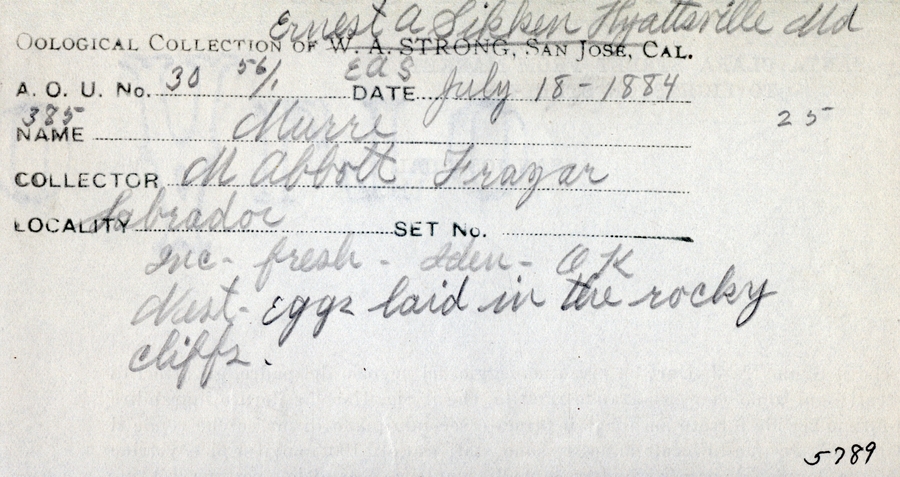 Ernest A Sikken Hyattsville Md
OOLOGICAL COLLECTION OF W. A. STRONG, SAN JOSE, CAL.
EAS
A. O. U. No. 30 56/1 DATE July 18-1884
385 25
NAME Murre
COLLECTOR M Abbott Frazar
LOCALITY Labrador SET No.
Inc- fresh - Iden- OK
Nest- Eggs laid in the rocky
cliffs.
5789